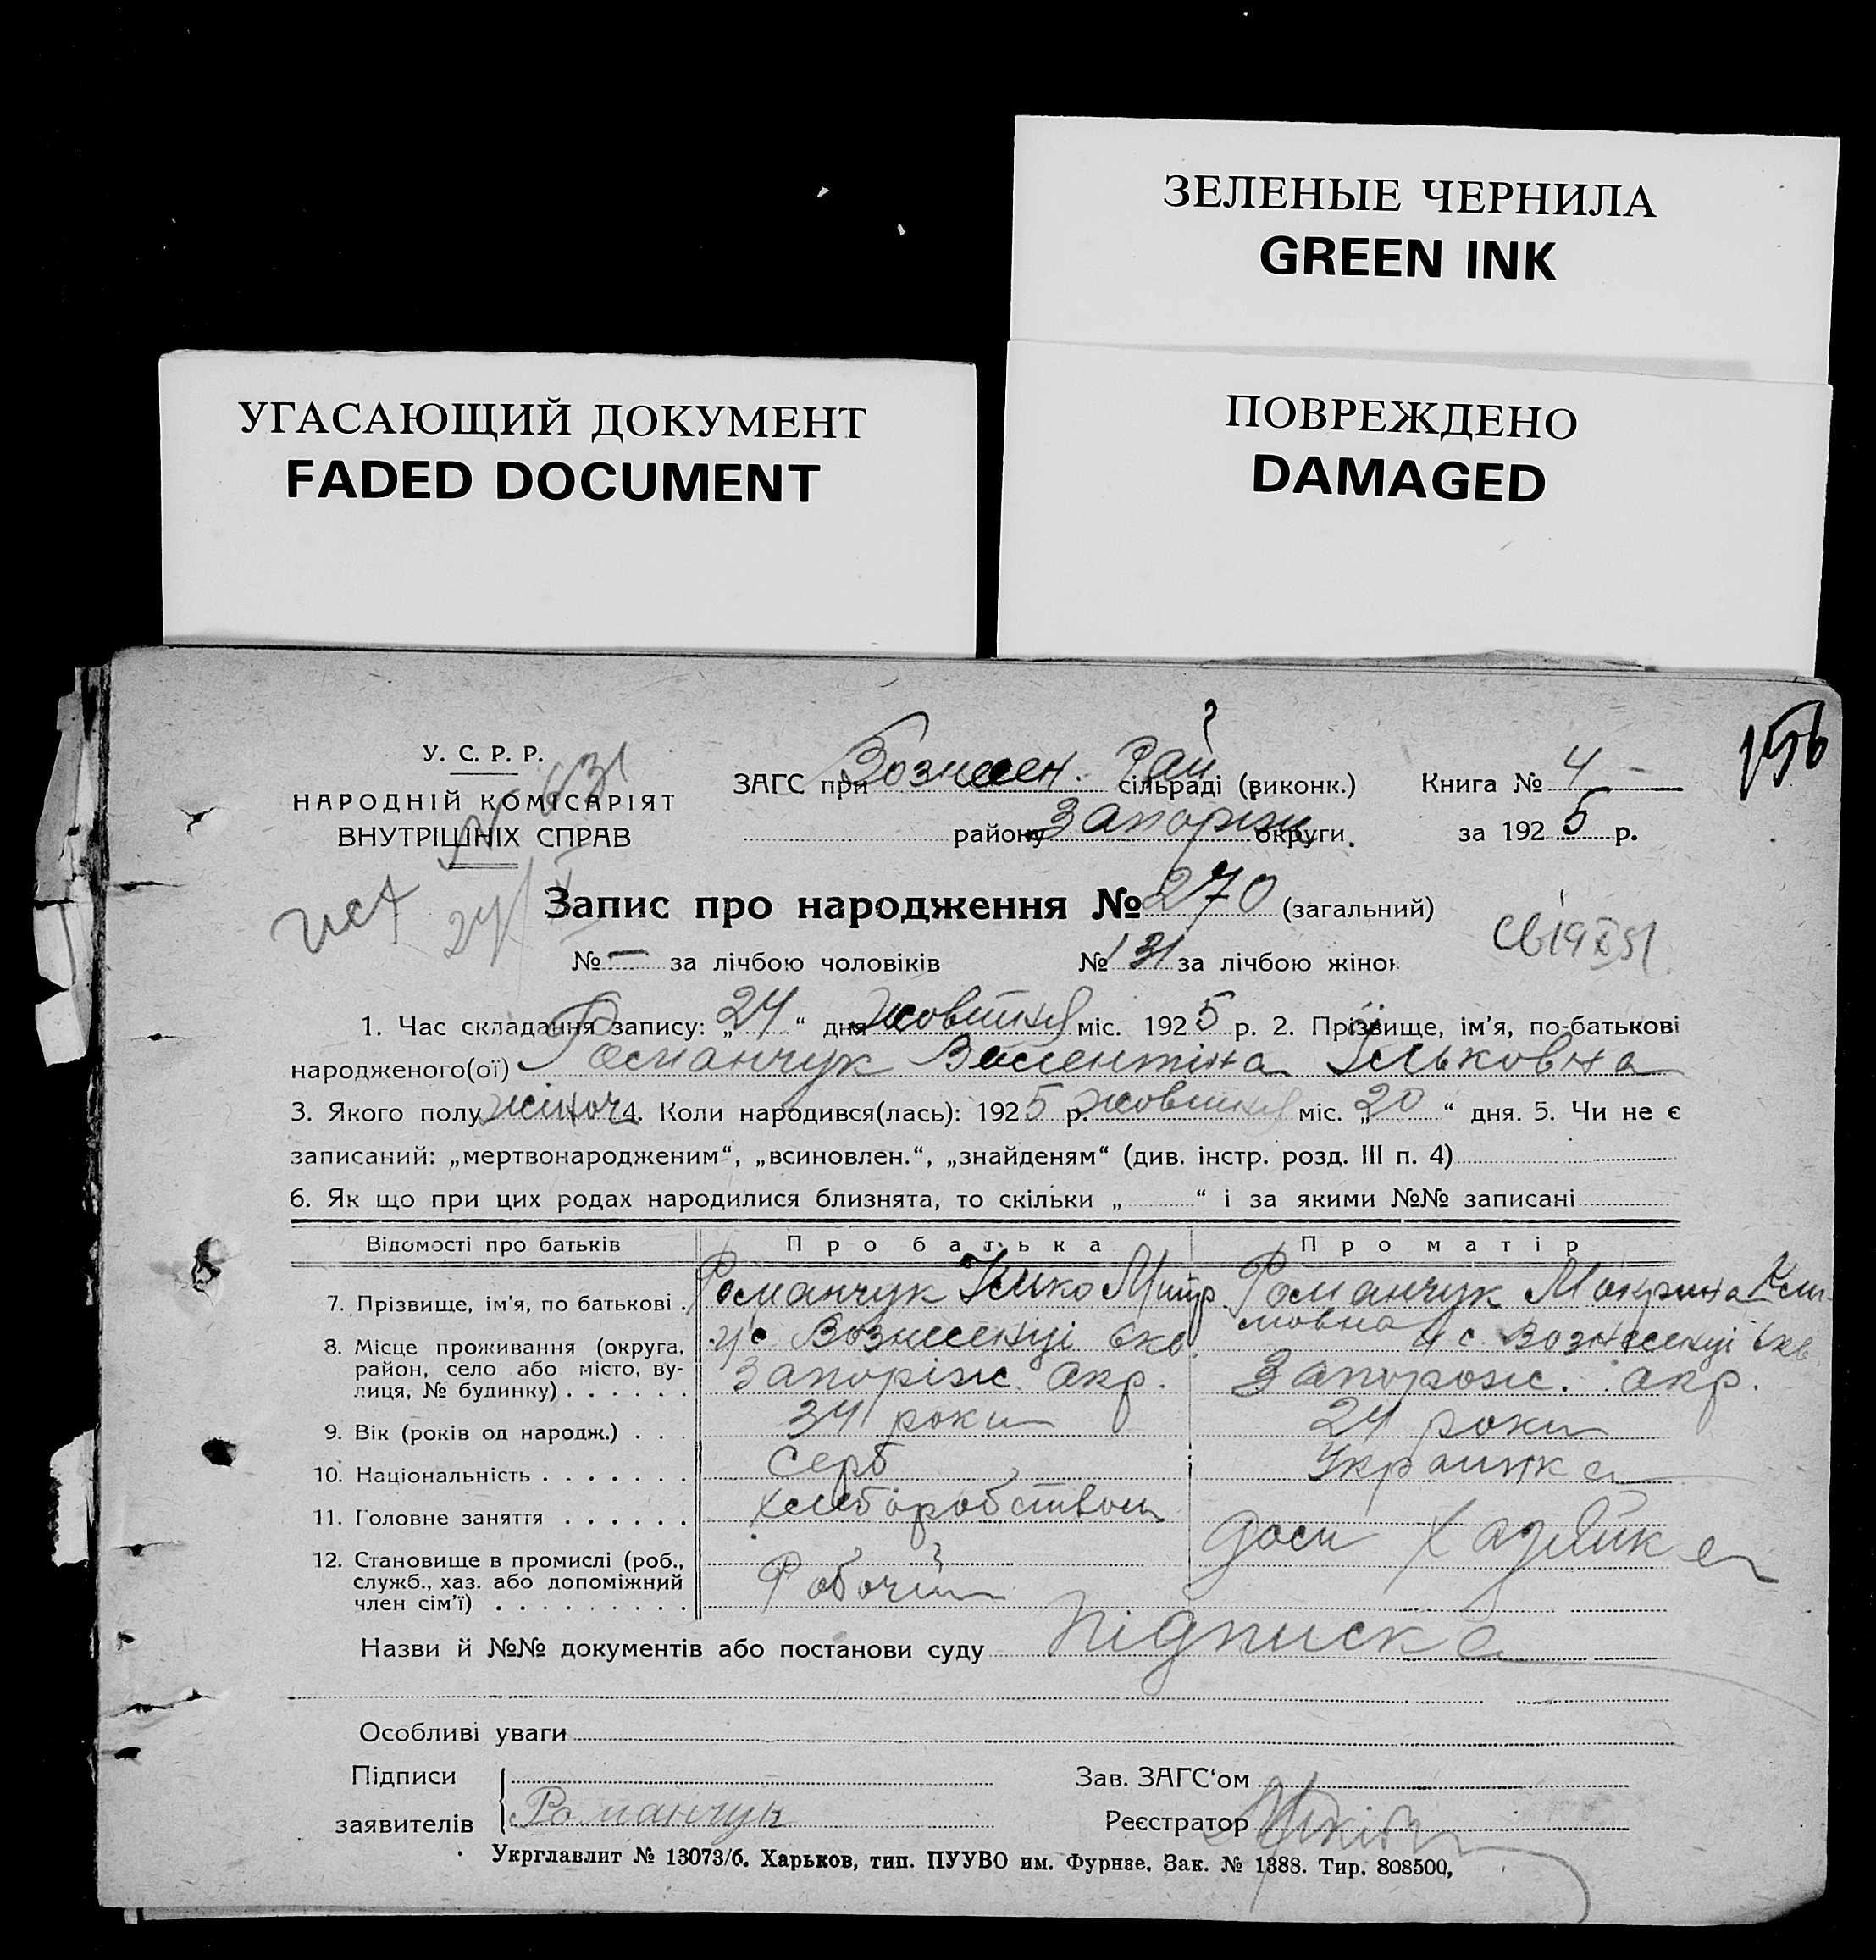 ЗЕЛЕНЫЕ ЧЕРНИЛА
GREEN INK
УГАСАЮЩИЙ ДОКУМЕНТ
FADED DOCUMENT
ПОВРЕЖДЕНО
DAMAGED
156
У. С. Р. Р.
НАРОДНІЙ КОМІСАРІЯТ
ВНУТРІШНІХ СПРАВ
№ 631
ЗАГС при Вознесен. Рай сільраді (виконк.)
району Запоріж округи.
Книга № 4
за 1925 р.
Запис про народження № 270 (загальний)
№ — за лічбою чоловіків № 131 за лічбою жінок
1. Час складання запису: „24“ дня жовтня міс. 1925 р. 2. Прізвище, ім'я, по-батькові
народженого(ої) Романчук Валентіна Ільковна
3. Якого полу жіноч 4. Коли народився(лась): 1925 р. жовтня міс. „20“ дня. 5. Чи не є
записаний: „мертвонародженим“, „всиновлен.“, „знайденям“ (див. інстр. розд. III п. 4)
6. Як що при цих родах народилися близнята, то скільки „ “ і за якими №№ записані
Відомості про батьків Про батька Про матір
7. Прізвище, ім'я, по батькові . Романчук Илико Митр Романчук Макрина Кли-
мовна
8. Місце проживання (округа, район, село або місто, вулиця, № будинку) . . . . . . с Вознесенці 6кв. Запоріж. окр. с. Вознесенці 6кв Запорож. окр.
9. Вік (років од народж.) . . . 34 роки 24 роки
10. Національність . . . . . . . Серб Украинка
11. Головне заняття . . . . . . хлеборобством дом хазяйка
12. Становище в промислі (роб., служб., хаз. або допоміжний член сім'ї) . . . . . . . . . Робочий
Назви й №№ документів або постанови суду підписка
Особливі уваги
Підписи заявителів Романчук
Зав. ЗАГС'ом
Реєстратор
Укрглавлит № 13073/б. Харьков, тип. ПУУВО им. Фрунзе. Зак. № 1388. Тир. 808500,